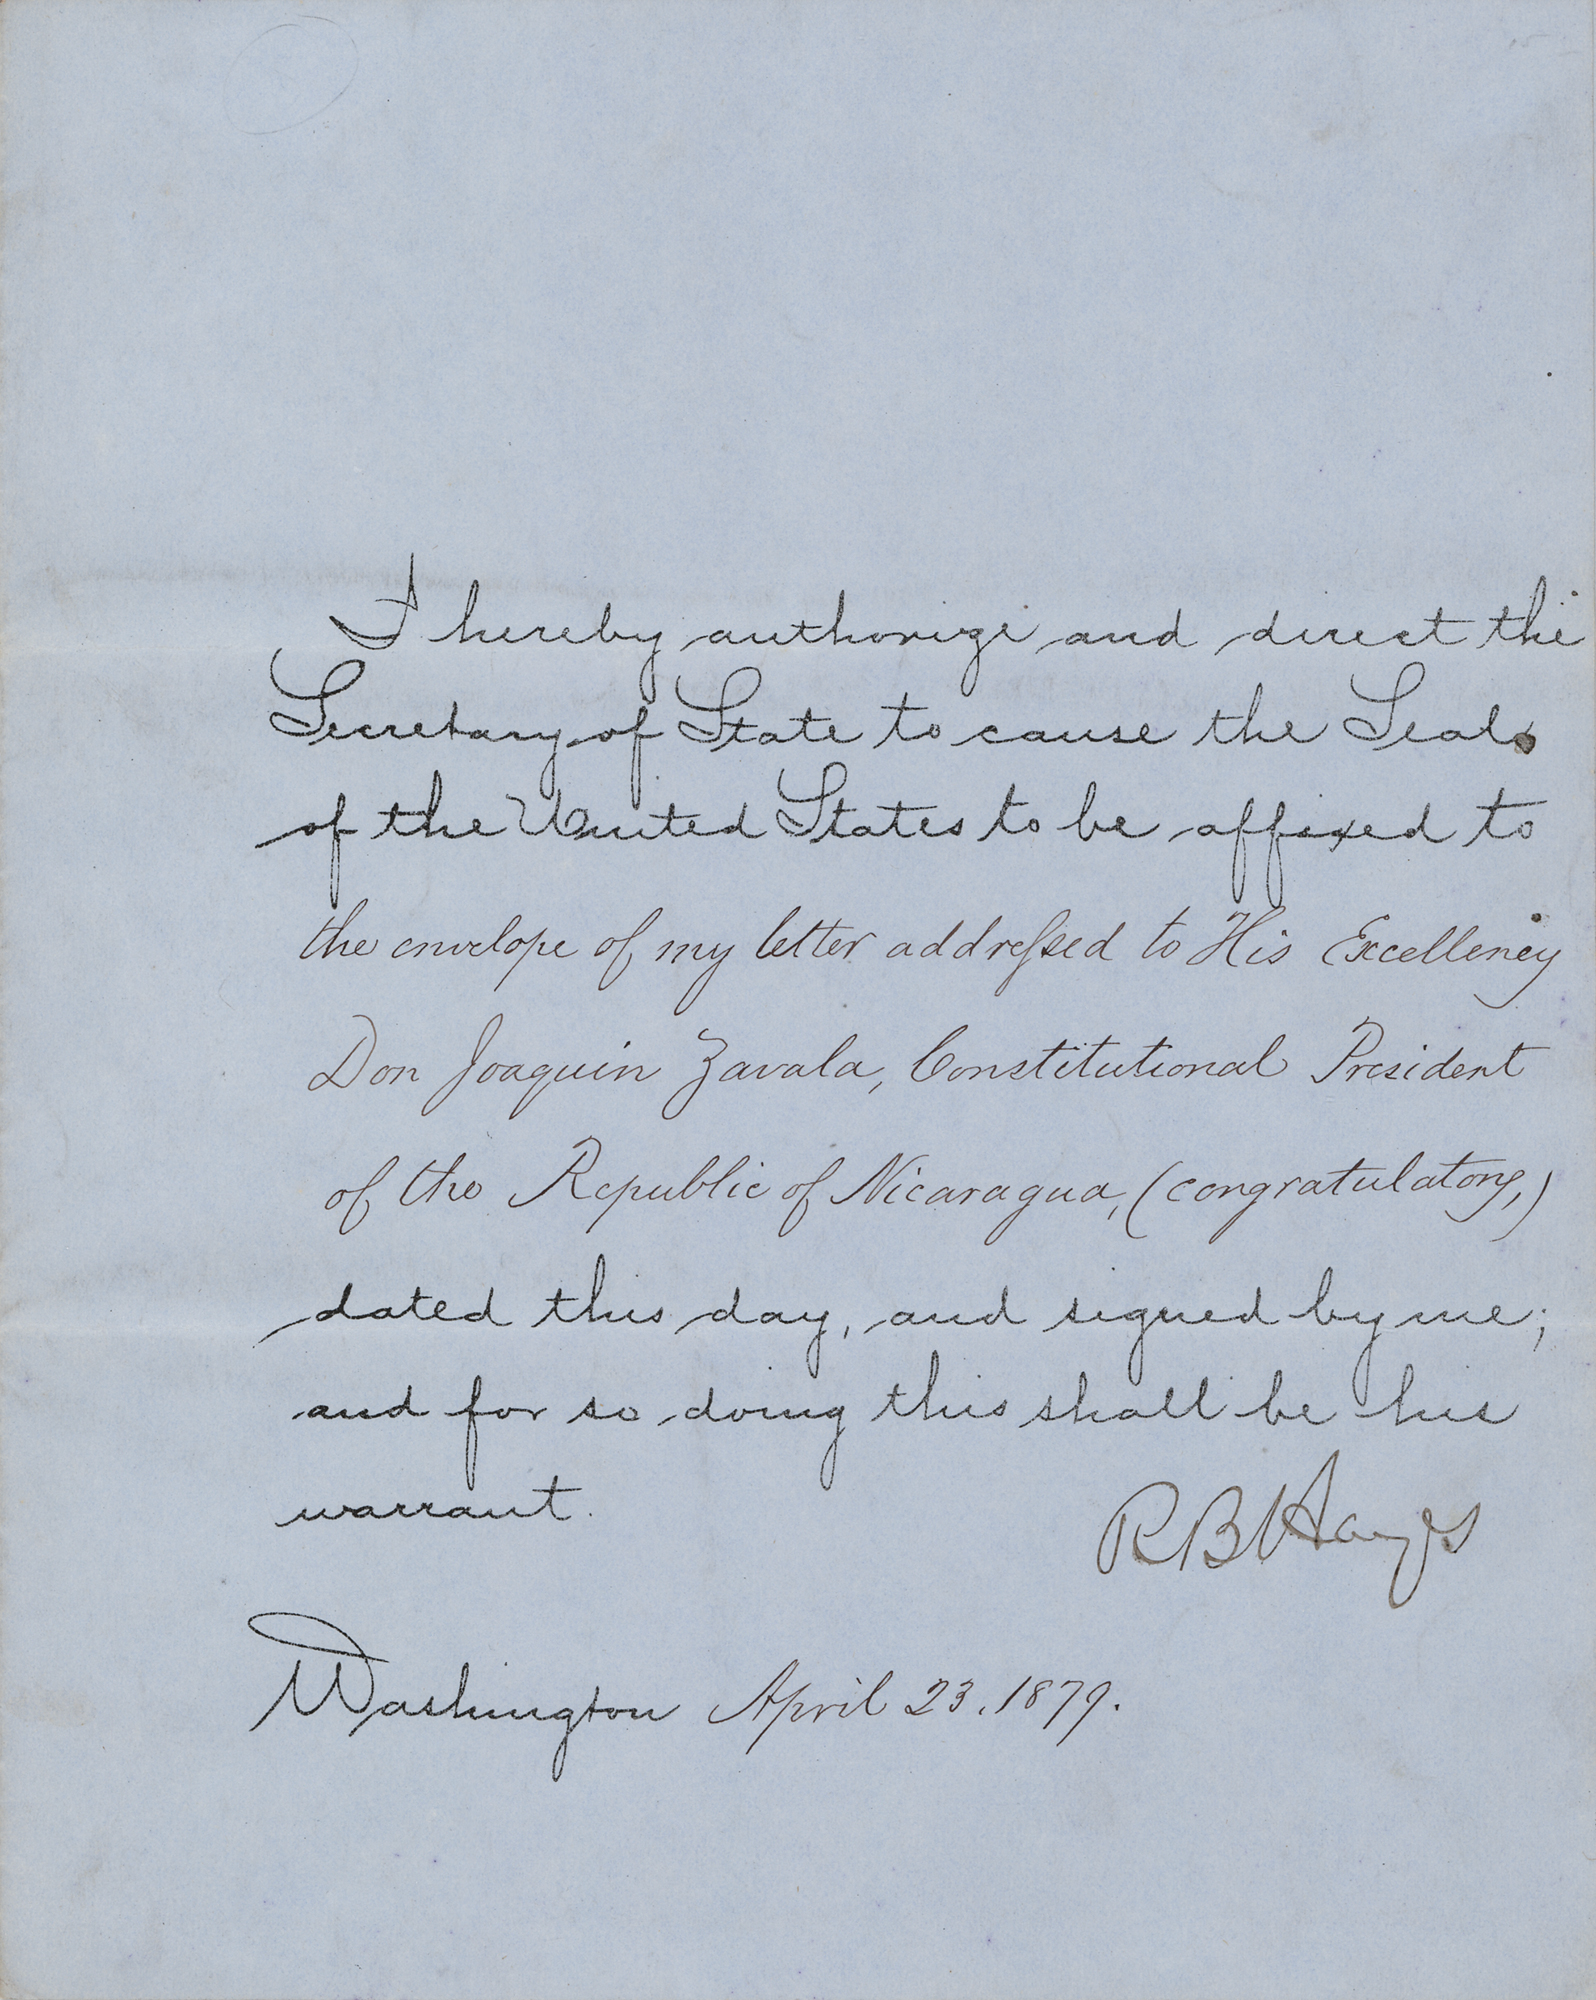 I hereby authorize and direct the
Secretary of State to cause the Seal
of the United States to be affixed to
the envelope of my letter addressed to His Excellency
Don Joaquin Zavala, Constitutional President
of the Republic of Nicaragua, (congratulatory,)
dated this day, and signed by me;
and for so doing this shall be his
warrant.
R B Hayes
Washington April 23. 1879.